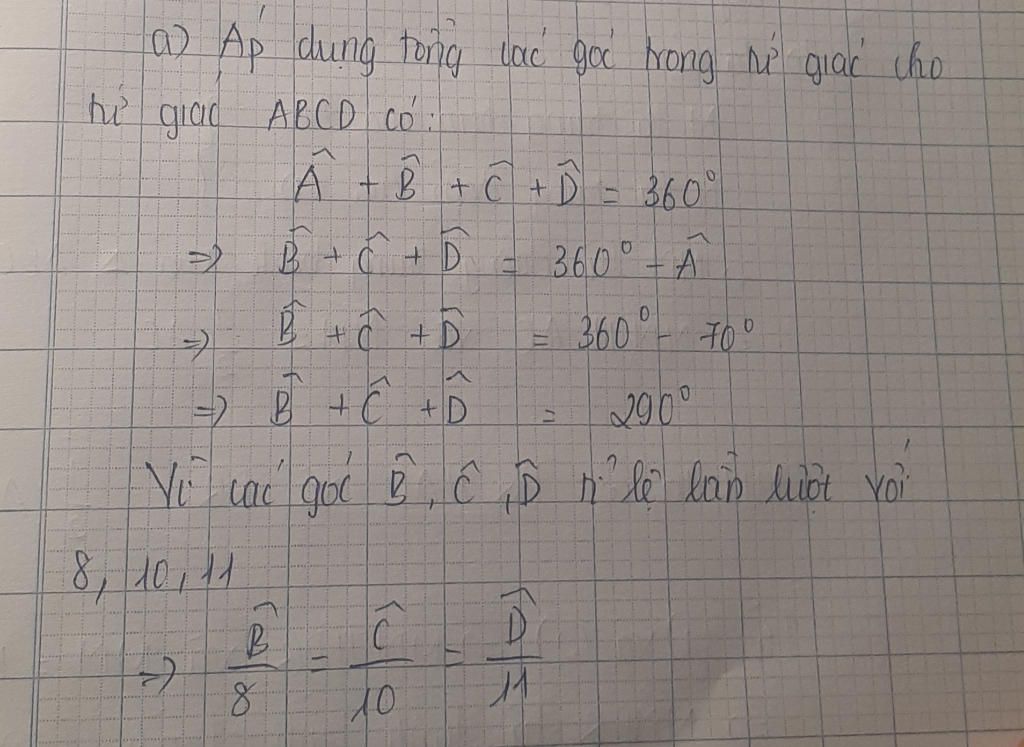 a) Áp dụng tổng các góc trong tứ giác cho
tứ giác ABCD có:
Â + B̂ + Ĉ + D̂ = 360°
=> B̂ + Ĉ + D̂ = 360° - Â
=> B̂ + Ĉ + D̂ = 360° - 70°
=> B̂ + Ĉ + D̂ = 290°
Vì các góc B̂, Ĉ, D̂ tỉ lệ lần lượt với
8, 10, 11
=> B̂/8 = Ĉ/10 = D̂/11